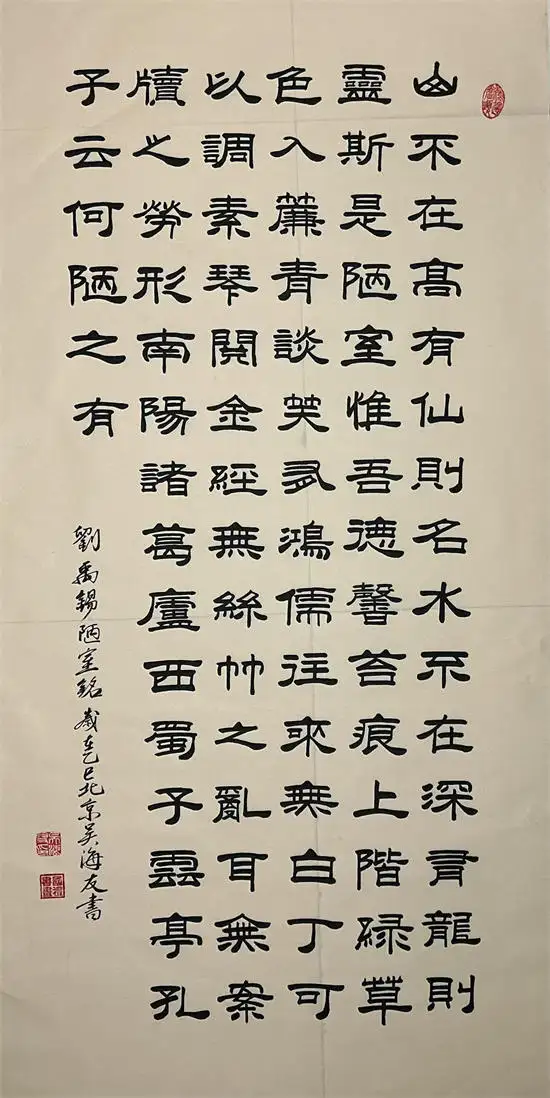 山不在髙有仙則名水不在深有龍則
靈斯是陋室惟吾德馨苔痕上階緑草
色入簾青談笑有鴻儒往來無白丁可
以調素琴閱金經無絲竹之亂耳無案
牘之勞形南陽諸葛廬西蜀子雲亭孔
子云何陋之有
劉禹錫陋室銘 歲在乙巳北京吴海友書